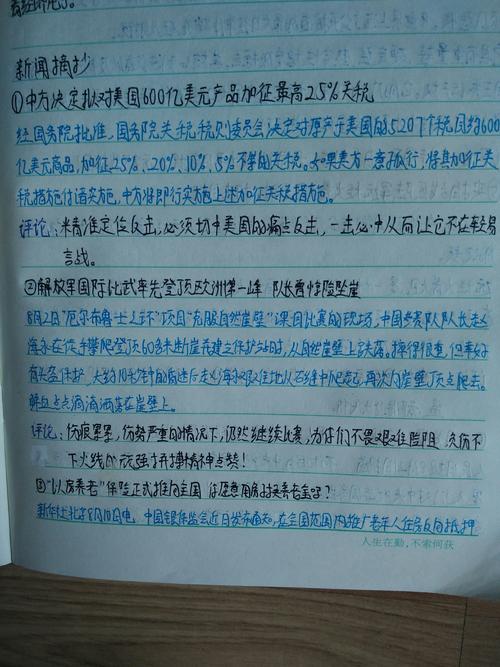 新闻摘抄
①中方决定拟对美国600亿美元产品加征最高25%关税
经国务院批准，国务院关税税则委员会决定对原产于美国的5207个税目约600
亿美元商品，加征25%、20%、10%、5%不等的关税。如果美方一意孤行，将其加征关
税措施付诸实施，中方将即行实施上述加征关税措施。
评论：精准定位反击，必须切中美国的痛点反击，一击必中从而让它不在轻易
言战。
②解放军国际比武率先登顶欧洲第一峰 队长曾惊险坠崖
8月2日"厄尔布鲁士之环"项目"克服自然崖壁"课目比赛的现场，中国参赛队队长赵
海永在徒手攀爬登顶60多米断崖并建立保护站时，从自然崖壁上跌落。摔得很重，但幸好
有头盔保护，大约10秒钟的后赵海永艰难地从石缝中爬起，再次向崖壁顶点爬去。
鲜血点点滴滴洒落在崖壁上。
评论：伤痕累累，伤势严重的情况下，仍然继续比赛，为仔们不畏艰难险阻 负伤不
下火线的顽强拼搏精神点赞！
③"以房养老"保险正式推向全国 你愿意用房子换养老金吗？
新华社北京8月10日电 中国银保监会近日发布通知，在全国范围内推广老年人住房反向抵押
人生在勤，不索何获